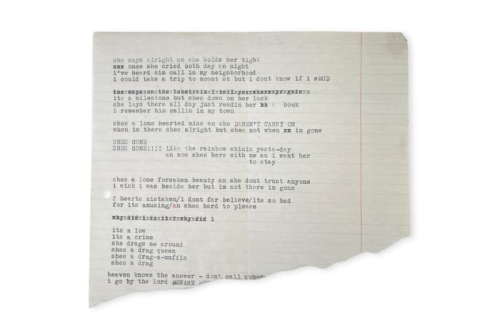 she says alright an she holds her tight
xxx once she cried both day an night
i've heard him call in my neighborhood
i could take a trip to mount st but i dont know if i shUD
its a milestone but shes down on her luck
she lays there all day just readin her book
i remember him callin in my town
shes a lone hearted miss an she DOESN'T CARRY ON
when im there shes alright but shes not when xx im gone
SHES GONE
SHES GONE!!!! Like the rainbow shinin yesta-day
an now shes here with me an i want her
to stay
shes a lone forsaken beauty an she dont trust anyone
i wish i was beside her but im not there im gone
2 hearts mistaken/i dont far believe/its so bad
for its amusing/an shes hard to please
its a low
its a crime
she drags me around
shes a drag queen
shes a drag-a-muffin
shes a drag
heaven knows the answer - dont call nobody
i go by the lord